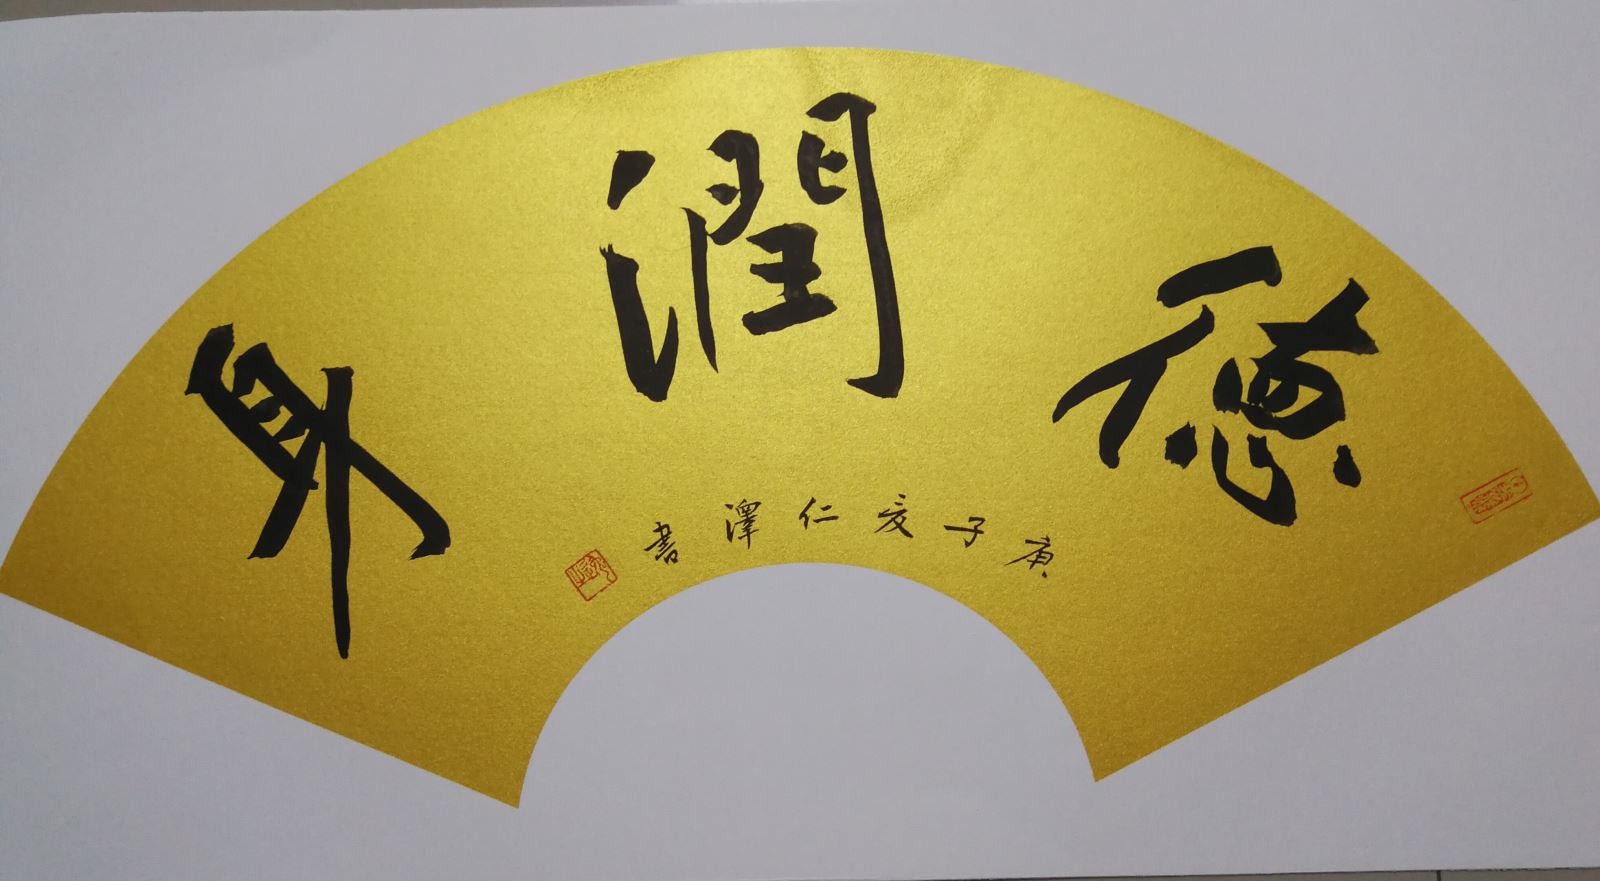 德潤身
庚子爰仁澤書